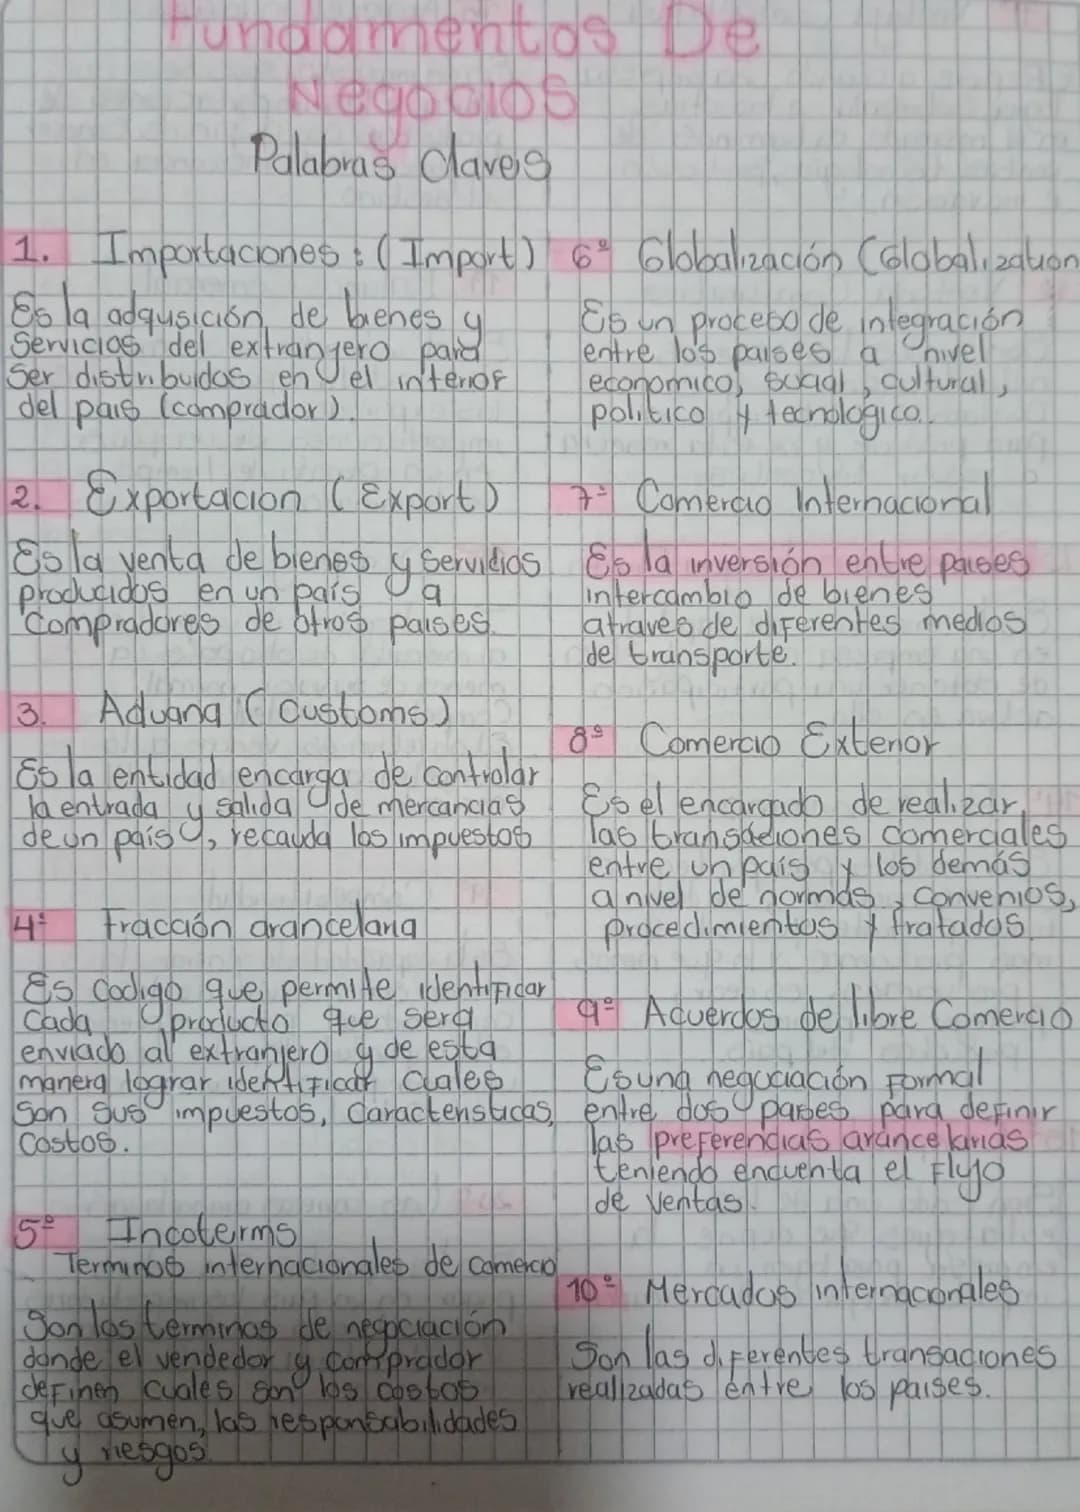 Fundamentos De
Negocios
Palabras Claves
1. Importaciones : (Import)
Es la adqusición de bienes y
Servicios del extranjero para
Ser distribuidos en el interior
del pais (comprador).
2. Exportacion (Export)
Es la venta de bienes y Servicios
producidos en un país a
Compradores de otros paises.
3. Aduana (Customs)
Es la entidad encarga de controlar
la entrada y salida de mercancias
de un país y, recauda los impuestos
4º Fracción arancelaria
Es codigo que permite identificar
Cada producto que sera
enviado al extranjero y de esta
manera lograr identificar cuales
Son sus impuestos, Caracteristicas,
Costos.
5º Incoterms
Terminos internacionales de comercio
Son los terminos de negociación
donde el vendedor y comprador
definen cuales son los costos
que asumen, las responsabilidades
y riesgos
6º Globalización (Globalization
Es un proceso de integración
entre los paises a nivel
economico, social, cultural,
politico y tecnologico.
7º Comercio Internacional
Es la inversión entre paises
intercambio de bienes
atraves de diferentes medios
de transporte.
8º Comercio Exterior
Es el encargado de realizar
las transaciones comerciales
entre un país y los demás
a nivel de normas, convenios,
procedimientos y tratados.
9º Acuerdos de libre Comercio
Es una negociación formal
entre dos paises para definir
las preferencias arancelarias
teniendo encuenta el flujo
de ventas.
10º Mercados internacionales
Son las diferentes transaciones
realizadas entre los paises.